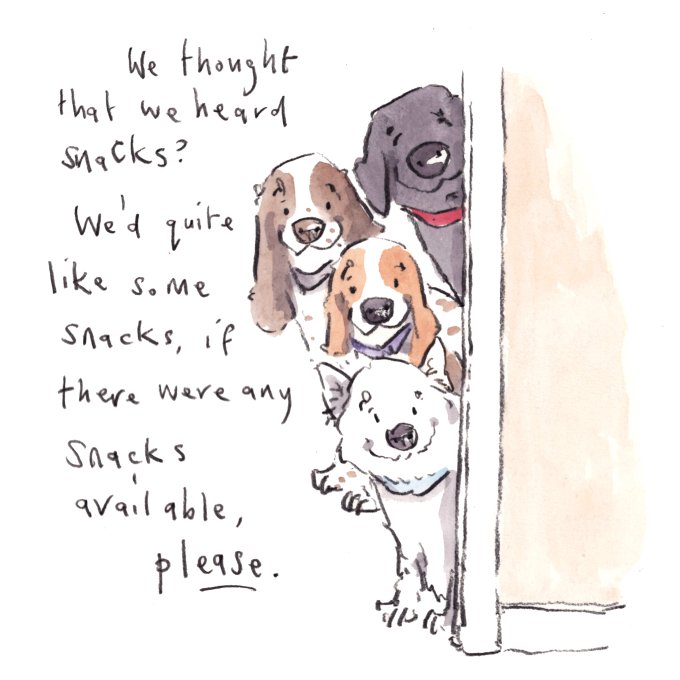 We thought
that we heard
snacks?
We'd quite
like some
snacks, if
there were any
snacks
available,
please.